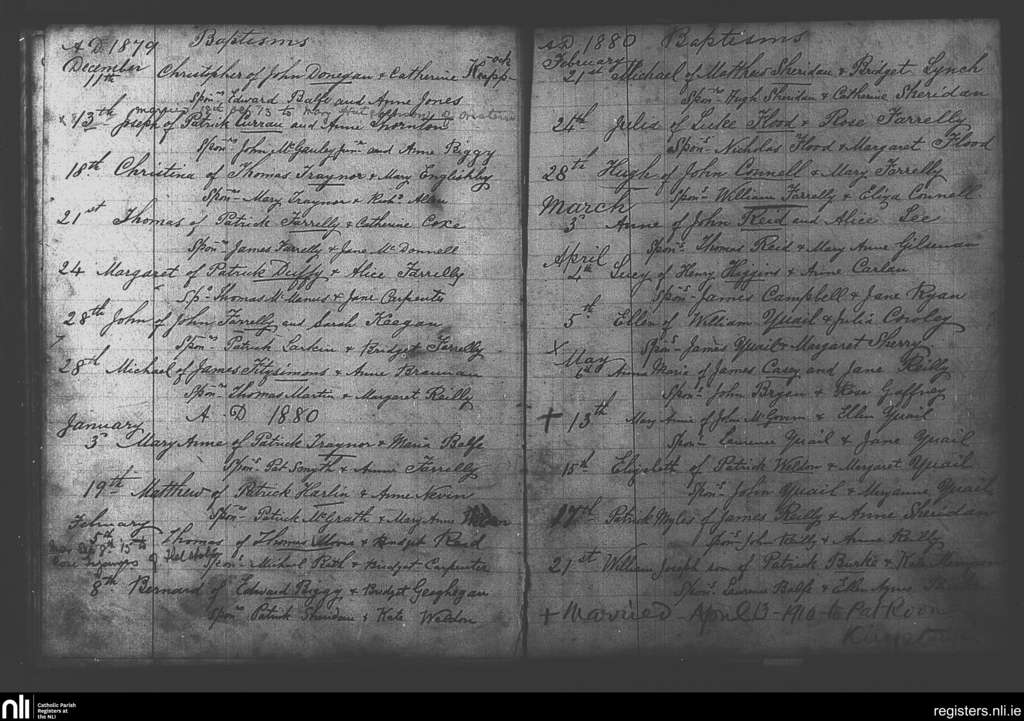 A.D. 1879 Baptisms
December
11th Christpher of John Donegan & Catherine Knapp-ock
Sponrs Edward Balfe and Anne Jones
married 13 to Mary of
x 13th Joseph of Patrick Curran and Anne Thornton
Sponrs John McGauley junr and Anne Biggy
18th Christina of Thomas Traynor & Mary Englishby
Sponrs Mary Traynor & Richd Allen
21st Thomas of Patrick Farrelly & Catherine Coxe
Sponrs James Farrelly & Jane McDonnell
24 Margaret of Patrick Duffy & Alice Farrelly
Sps Thomas McManus & Jane Carpenter
28th John of John Farrelly and Sarah Keegan
Sponrs Patrick Larkin & Bridget Farrelly
28th Michael of James Fitzsimons & Anne Brannan
Sponrs Thomas Martin & Margaret Reilly
A. D 1880
January
3rd Mary Anne of Patrick Traynor & Maria Balfe
Sponrs Pat Smyth & Annie Farrelly
19th Matthew of Patrick Harlin & Anne Nevin
Sponrs Patrick McGrath & Mary Anne
February
5th Thomas of Thomas & Bridget Reid
Sponrs Michael & Bridget Carpenter
8th Bernard of Edward Biggy & Bridget Geoghegan
Sponrs Patrick Sheridan & Kate Weldon
A.D. 1880 Baptisms
February
21st Michael of Matthew Sheridan & Bridget Lynch
Sponrs Hugh Sheridan & Catherine Sheridan
24th Julia of Luke Flood & Rose Farrelly
Sponrs Nicholas Flood & Margaret Flood
28th Hugh of John Connell & Mary Farrelly
Sponrs William Farrelly & Eliza Connell
March
3rd Anne of John Reid and Alice Lee
Sponrs Thomas Reid & Mary Anne Gilsenan
April
4th Lucy of Henry Higgins & Anne Carlan
Sponrs James Campbell & Jane Ryan
5th Ellen of William Quail & Julia Cowley
Sponrs James Quail & Margaret Sherry
X May
6th Anne Maria of James Casey and Jane Reilly
Sponrs John Bryan & Rose Gaffney
+ 13th Mary Anne of John & Ellen Quail
Sponrs Laurence Quail & Jane Quail
15th Elizabeth of Patrick Weldon & Margaret Quail
Sponrs John Quail & Maryanne Quail
17th Patrick Myles of James Reilly & Anne Sheridan
Sponrs John Reilly & Anne Reilly
21st William Joseph son of Patrick Burke & Kate
Sponrs Laurence Balfe & Ellen Agnes
+ Married April 13 - 1910 - to Pat
nli
Catholic Parish
Registers at
the NLI
registers.nli.ie